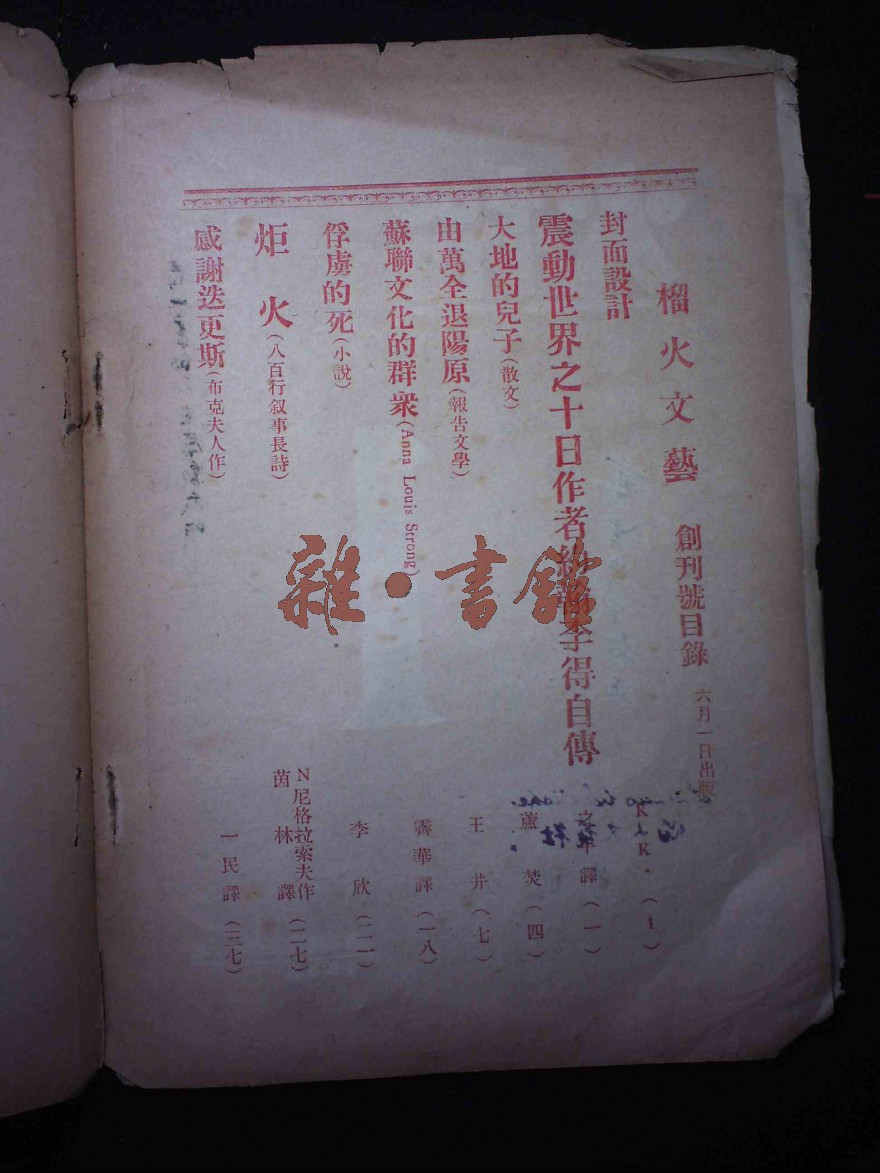 榴火文藝 創刊號目錄 六月一日出版
封面設計 K.K. (1)
震動世界之十日作者約翰李得自傳 譯 (一)
大地的兒子(散文) 蘆焚 (四)
由萬全退陽原(報告文學) 王井 (七)
蘇聯文化的群衆(Anna Louis Strong) 霽華譯 (一八)
俘虜的死(小說) 李欣 (二一)
炬火(八百行叙事長詩) N尼格拉索夫作 茵林譯 (二七)
感謝迭更斯(布克夫人作) 一民譯 (三七)
雜·書館